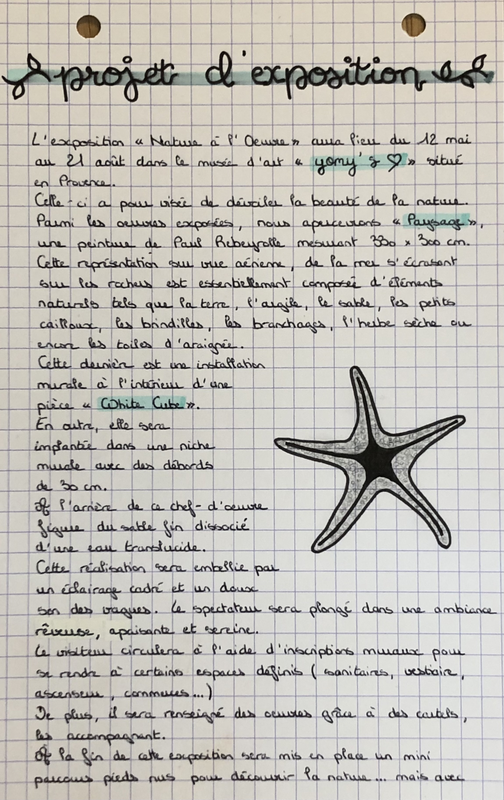 projet d'exposition
L'exposition « Nature à l'Oeuvre » aura lieu du 12 mai
au 21 août dans le musée d'art « yomy's ♡ » situé
en Provence.
Celle-ci a pour visée de dévoiler la beauté de la nature.
Parmi les oeuvres exposées, nous apercevons « Paysage »,
une peinture de Paul Rebeyrolle mesurant 330 x 300 cm.
Cette représentation sur vue aérienne, de la mer s'écrasant
sur les rochers est essentiellement composée d'éléments
naturels tels que la terre, l'argile, le sable, les petits
cailloux, les brindilles, les branchages, l'herbe sèche ou
encore les toiles d'araignée.
Cette dernière est une installation
murale à l'intérieur d'une
pièce « White Cube ».
En outre, elle sera
implantée dans une niche
murale avec des débords
de 30 cm.
A l'arrière de ce chef-d'oeuvre
figure du sable fin dissocié
d'une eau translucide.
Cette réalisation sera embellie par
un éclairage cadré et un doux
son des vagues. Le spectateur sera plongé dans une ambiance
rêveuse, apaisante et sereine.
Le visiteur circulera à l'aide d'inscriptions murales pour
se rendre à certains espaces définis ( sanitaires, vestiaire,
ascenseur, commerces...)
De plus, il sera renseigné des oeuvres grâce à des cartels,
les accompagnant.
A la fin de cette exposition sera mis en place un mini
parcours pieds nus pour découvrir la nature... mais avec